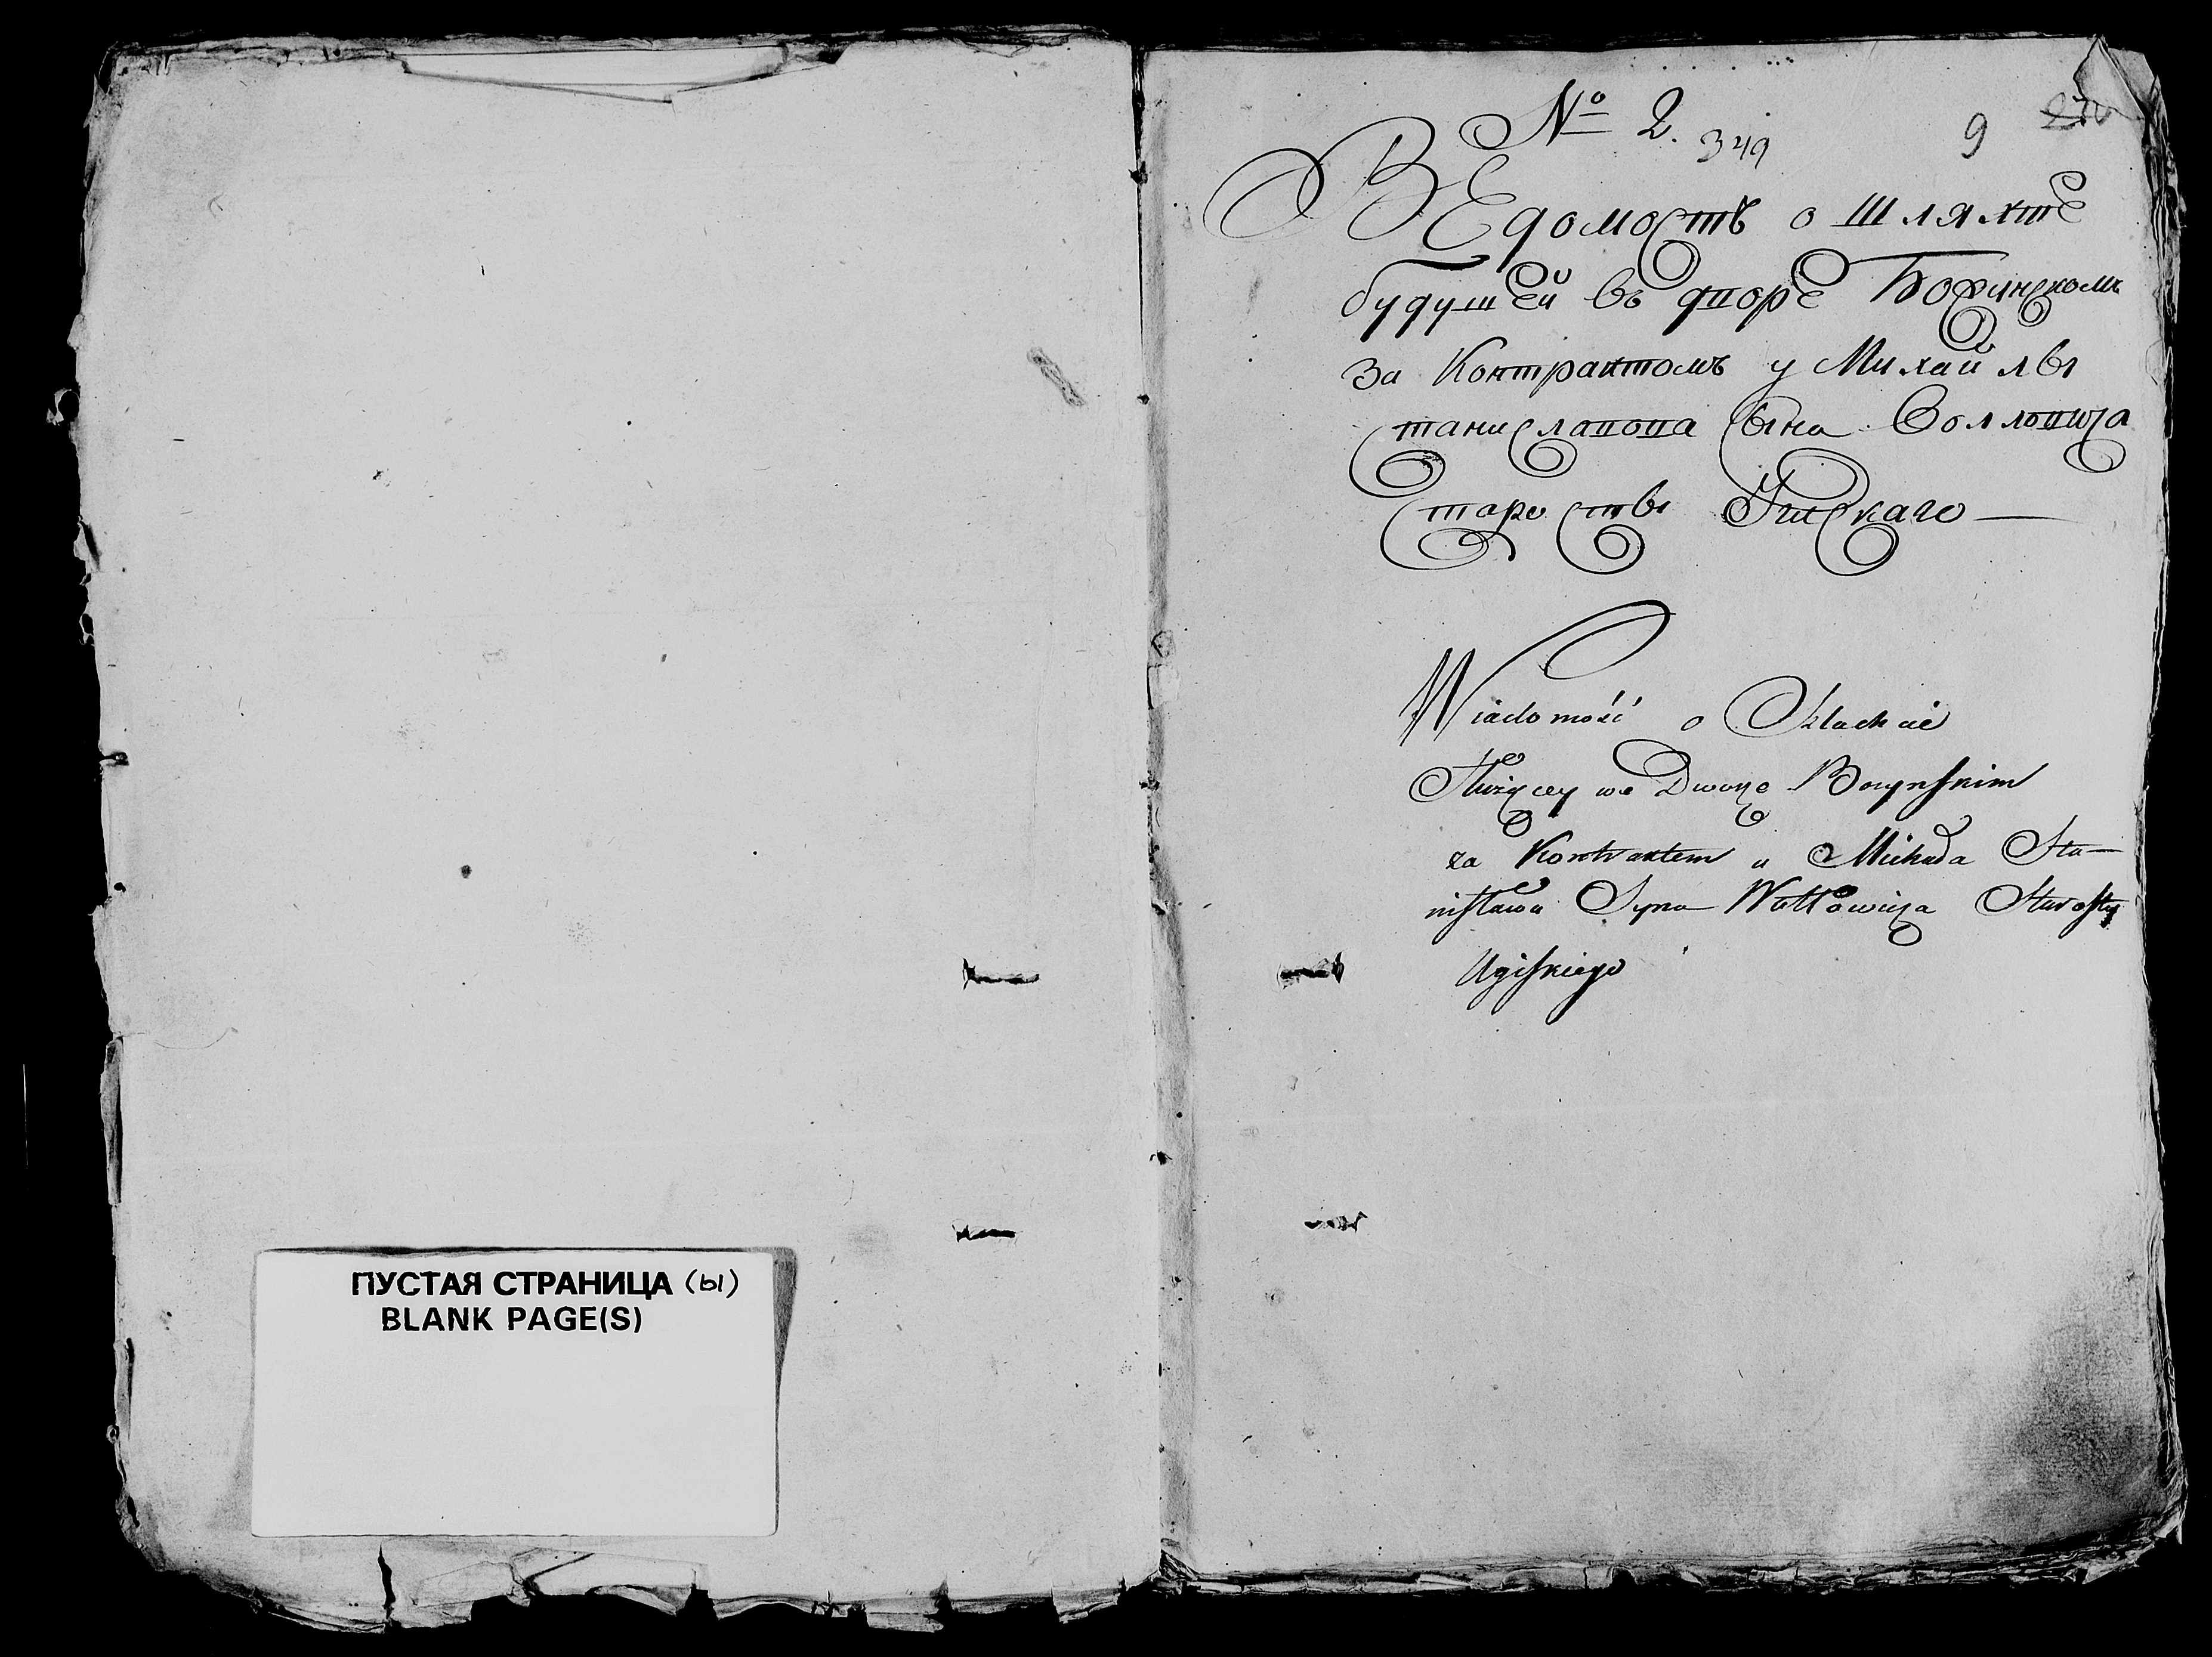 ПУСТАЯ СТРАНИЦА (ы)
BLANK PAGE(S)
№ 2. 349 9
ВЕдомость о Шляхте
будущей въ дворе Бохинскомъ
за Контрактомъ у Михайлы
Станиславова Сына Волловича
Старосты
Wiadomość o Szlachcie
Służącey we Dworze Bocynskim
za Kontraktem u Michała Sta-
nisława Syna Wołłowicza Starosty
Ugiskiego